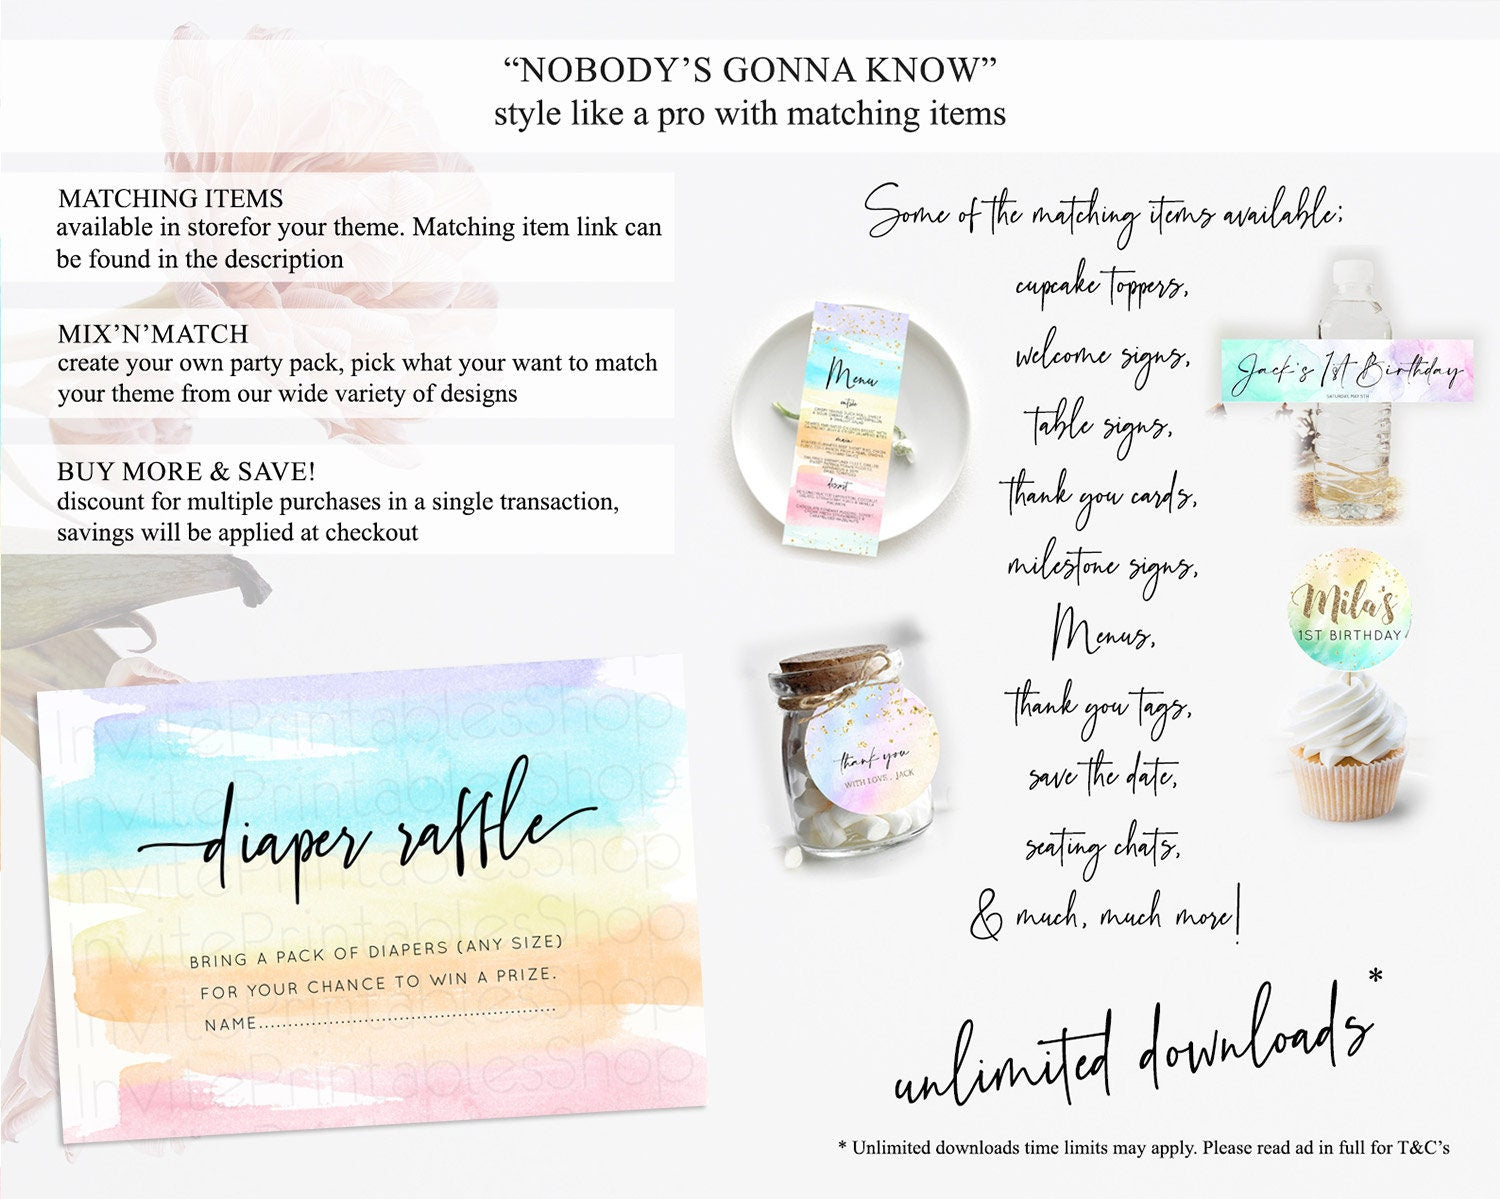 “NOBODY’S GONNA KNOW”
style like a pro with matching items
MATCHING ITEMS
available in storefor your theme. Matching item link can
be found in the description
MIX’N’MATCH
create your own party pack, pick what your want to match
your theme from our wide variety of designs
BUY MORE & SAVE!
discount for multiple purchases in a single transaction,
savings will be applied at checkout
InvitePrintablesShop
diaper raffle
BRING A PACK OF DIAPERS (ANY SIZE)
FOR YOUR CHANCE TO WIN A PRIZE.
NAME..................................................
Some of the matching items available;
cupcake toppers,
welcome signs,
table signs,
thank you cards,
milestone signs,
Menus,
thank you tags,
save the date,
seating chats,
& much, much more!
Menu
entrée
main
dessert
Jack's 1st Birthday
SATURDAY, MAY 5TH
Mila's
1ST BIRTHDAY
thank you
WITH LOVE, JACK
unlimited downloads*
* Unlimited downloads time limits may apply. Please read ad in full for T&C’s